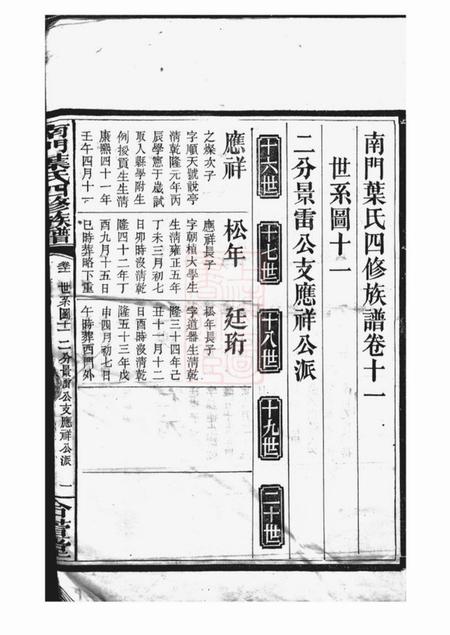 南門葉氏四修族譜卷十一
世系圖十一
二分景雷公支應祥公派
十六世
十七世
十八世
十九世
二十世
應祥
之燦次子
字順天號說亭
清乾隆元年丙
辰學憲于歲試
取入縣學附生
例授貢生生清
康熙四十一年
壬午四月十一
松年
應祥長子
字朝植大學生
生清雍正五年
丁未三月初七
日卯時沒清乾
隆四十二年丁
酉九月十五日
巳時葬略下重
廷珩
松年長子
字道器生清乾
隆三十四年己
丑十一月十二
日酉時沒清乾
隆五十三年戊
申四月初七日
午時葬西門外
南門葉氏四修族譜
卷十一
世系圖十一
二分景雷公支應祥公派
一